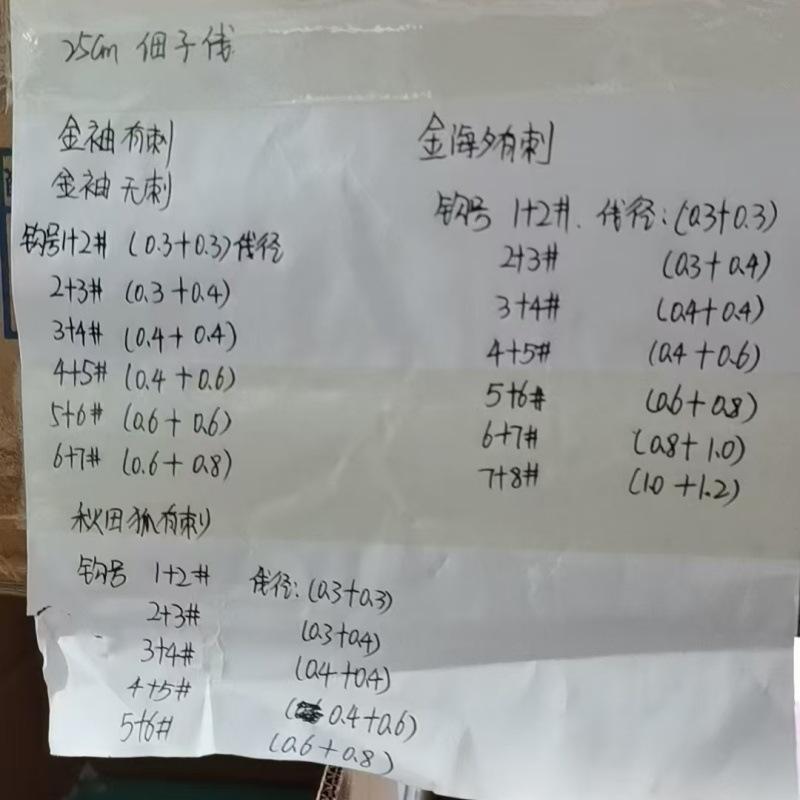 25cm 佃子线
金袖有刺
金袖无刺
钩号1+2# (0.3+0.3)线径
2+3# (0.3+0.4)
3+4# (0.4+0.4)
4+5# (0.4+0.6)
5+6# (0.6+0.6)
6+7# (0.6+0.8)
金海夕有刺
钩号 1+2#. 线径:(0.3+0.3)
2+3# (0.3+0.4)
3+4# (0.4+0.4)
4+5# (0.4+0.6)
5+6# (0.6+0.8)
6+7# (0.8+1.0)
7+8# (1.0+1.2)
秋田狐有刺
钩号 1+2# 线径:(0.3+0.3)
2+3# (0.3+0.4)
3+4# (0.4+0.4)
4+5# (0.4+0.6)
5+6# (0.6+0.8)